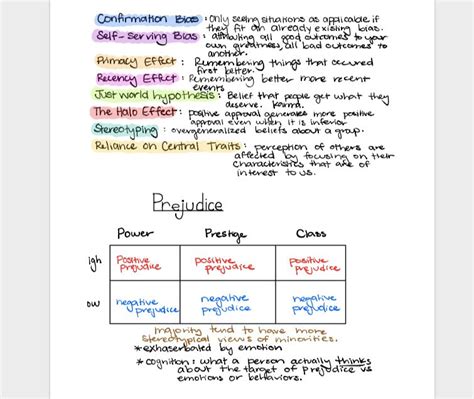 Confirmation Bias : Only seeing situations as applicable if
they fit an already existing bias.
Self-Serving Bias : attributing all good outcomes to your
own greatness, all bad outcomes to
another.
Primacy Effect : Remembering things that occurred
first better.
Recency Effect : Remembering better more recent
events
Just world hypothesis : Belief that people get what they
deserve. Karma.
The Halo Effect : positive approval generates more positive
approval even when it is inferior
Stereotyping : overgeneralized beliefs about a group.
Reliance on Central Traits : perception of others are
affected by focusing on their
characteristics that are of
interest to us.
Prejudice
Power Prestige Class
igh Positive prejudice positive prejudice positive prejudice
ow negative prejudice negative prejudice negative prejudice
majority tend to have more
stereotypical views of minorities.
*exhaserbated by emotion
*cognition: what a person actually thinks
about the target of prejudice vs
emotions or behaviors.